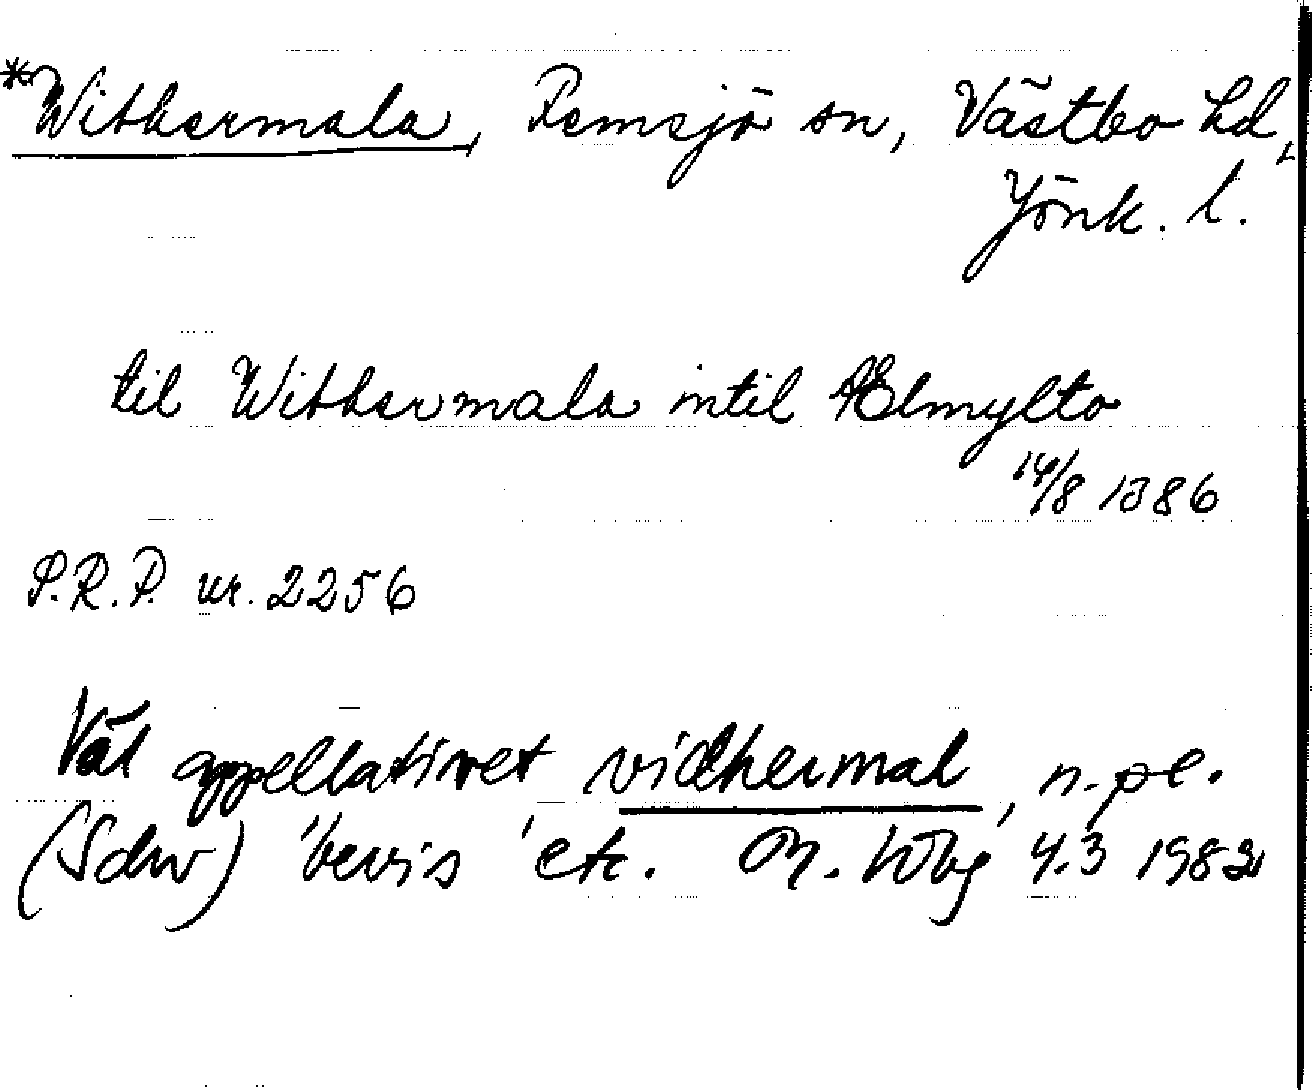 *Withermala, Femsjö sn, Västbo hd,
Jönk. l.
til Withermala intil Ælmylto
14/8 1386
P.R.P. nr. 2256
Väl appellativet vidhermal, n.pl.
(Sdw) 'bevis' etc. M. Wbg 4.3 1982